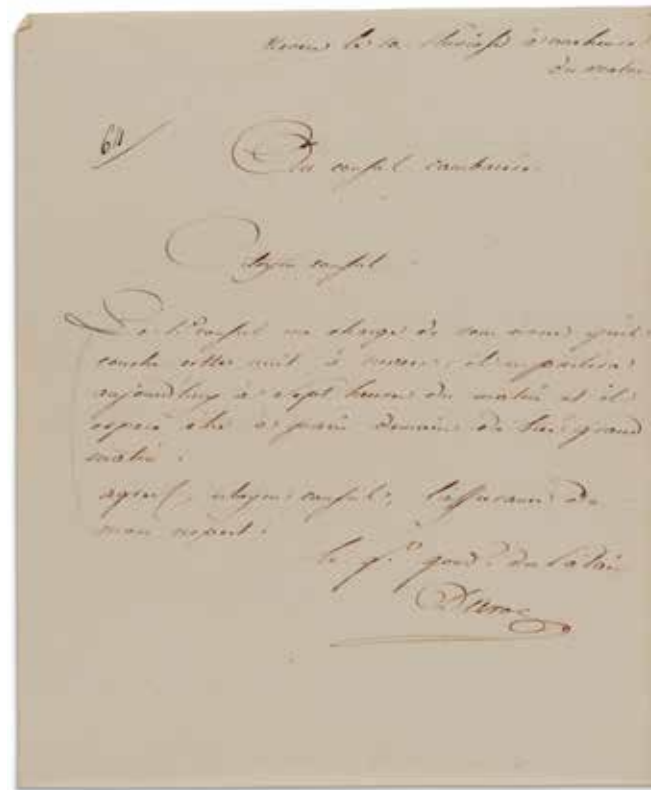 Nevers le 10 Pluviose à une heure
du matin
64
Au consul cambaceres
Citoyen consul
Le 1er consul me charge de vous
couche cette nuit à nevers, il en partira
aujourdhuy à sept heures du matin et il
espere etre à paris demain de grand
matin.
agréez, citoyen consul, l'assurance de
mon respect.
le g.al gouv.r du Palais
Duroc